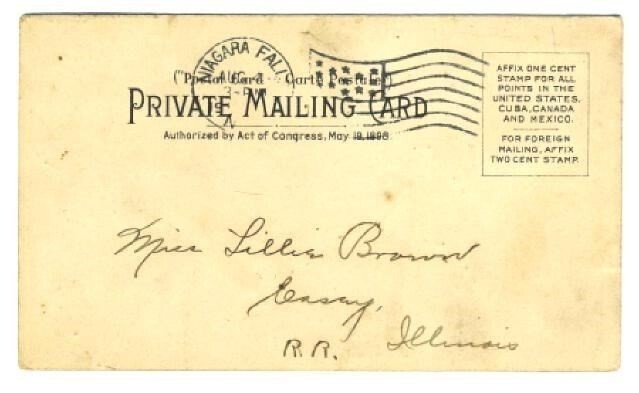 NIAGARA FALLS
AUG
3-PM
("Postal Card — Carte Postale")
PRIVATE MAILING CARD
Authorized by Act of Congress, May 19, 1898
AFFIX ONE CENT
STAMP FOR ALL
POINTS IN THE
UNITED STATES,
CUBA, CANADA
AND MEXICO.
FOR FOREIGN
MAILING, AFFIX
TWO CENT STAMP.
Miss Lillie Brown
Casey,
Illinois
R.R.